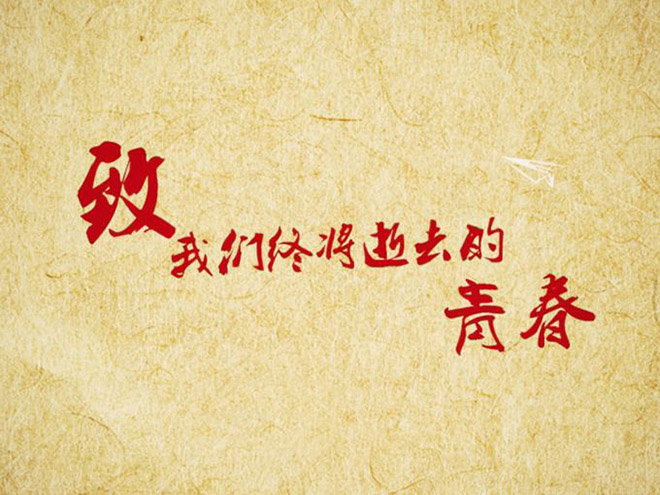 致
我们终将逝去的
青春